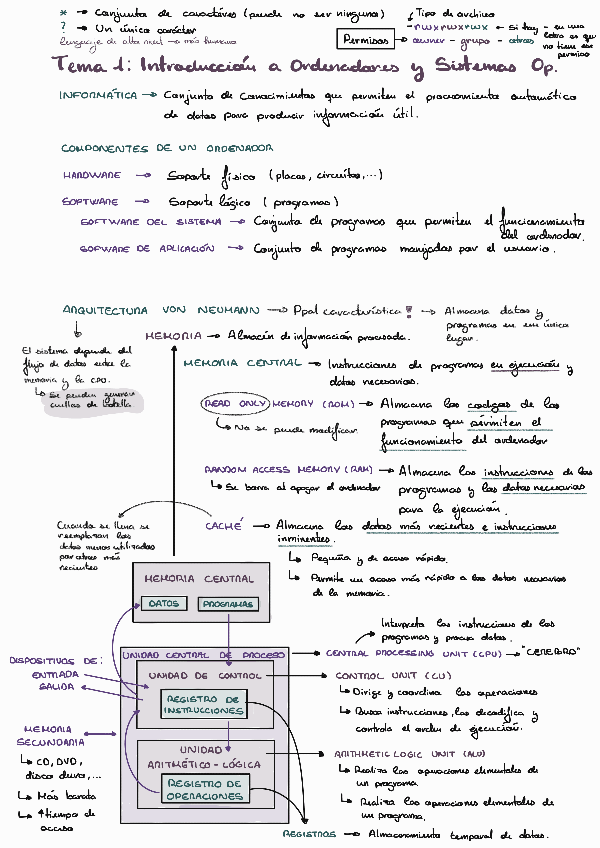 * → Conjunto de caracteres (puede no ser ninguno)
? → Un único carácter
lenguaje de alto nivel → más humano
Tipo de archivo
-rwxrwxrwx ← Si hay - en una letra es que no tiene ese permiso
Permisos → owner - grupo - otros
Tema 1: Introducción a Ordenadores y Sistemas Op.
INFORMÁTICA → Conjunto de conocimientos que permiten el procesamiento automático
de datos para producir información útil.
COMPONENTES DE UN ORDENADOR
HARDWARE → Soporte físico (placas, circuitos,...)
SOFTWARE → Soporte lógico (programas)
SOFTWARE DEL SISTEMA → Conjunto de programas que permiten el funcionamiento
del ordenador.
SOFWARE DE APLICACIÓN → Conjunto de programas manejados por el usuario.
ARQUITECTURA VON NEUMANN → Ppal característica! → Almacena datos y
programas en un único
lugar.
El sistema depende del
flujo de datos entre la
memoria y la CPU.
↳ Se pueden generar
cuellos de botella
MEMORIA → Almacén de información procesada.
MEMORIA CENTRAL → Instrucciones de programas en ejecución y
datos necesarios.
READ ONLY MEMORY (ROM) → Almacena los códigos de los
↳ No se puede modificar.
programas que permiten el
funcionamiento del ordenador
RANDOM ACCESS MEMORY (RAM) → Almacena las instrucciones de los
↳ Se borra al apagar el ordenador
programas y los datos necesarios
para la ejecución.
CACHÉ → Almacena los datos más recientes e instrucciones
inminentes.
↳ Pequeña y de acceso rápido.
↳ Permite un acceso más rápido a los datos necesarios
de la memoria.
Cuando se llena se
reemplazan los
datos menos utilizados
por otros más
recientes
MEMORIA CENTRAL
DATOS
PROGRAMAS
UNIDAD CENTRAL DE PROCESO
UNIDAD DE CONTROL
REGISTRO DE
INSTRUCCIONES
UNIDAD
ARITMÉTICO - LÓGICA
REGISTRO DE
OPERACIONES
DISPOSITIVOS DE:
ENTRADA
SALIDA
MEMORIA
SECUNDARIA
↳ CD, DVD,
disco duro,...
↳ Más barata
↳ ↑tiempo de
acceso
Interpreta las instrucciones de los
programas y procesa datos.
CENTRAL PROCESSING UNIT (CPU) → "CEREBRO"
CONTROL UNIT (CU)
↳ Dirige y coordina las operaciones
↳ Busca instrucciones, las decodifica y
controla el orden de ejecución.
ARITHMETIC LOGIC UNIT (ALU)
↳ Realiza las operaciones elementales de
un programa.
↳ Realiza las operaciones elementales de
un programa.
REGISTROS → Almacenamiento temporal de datos.